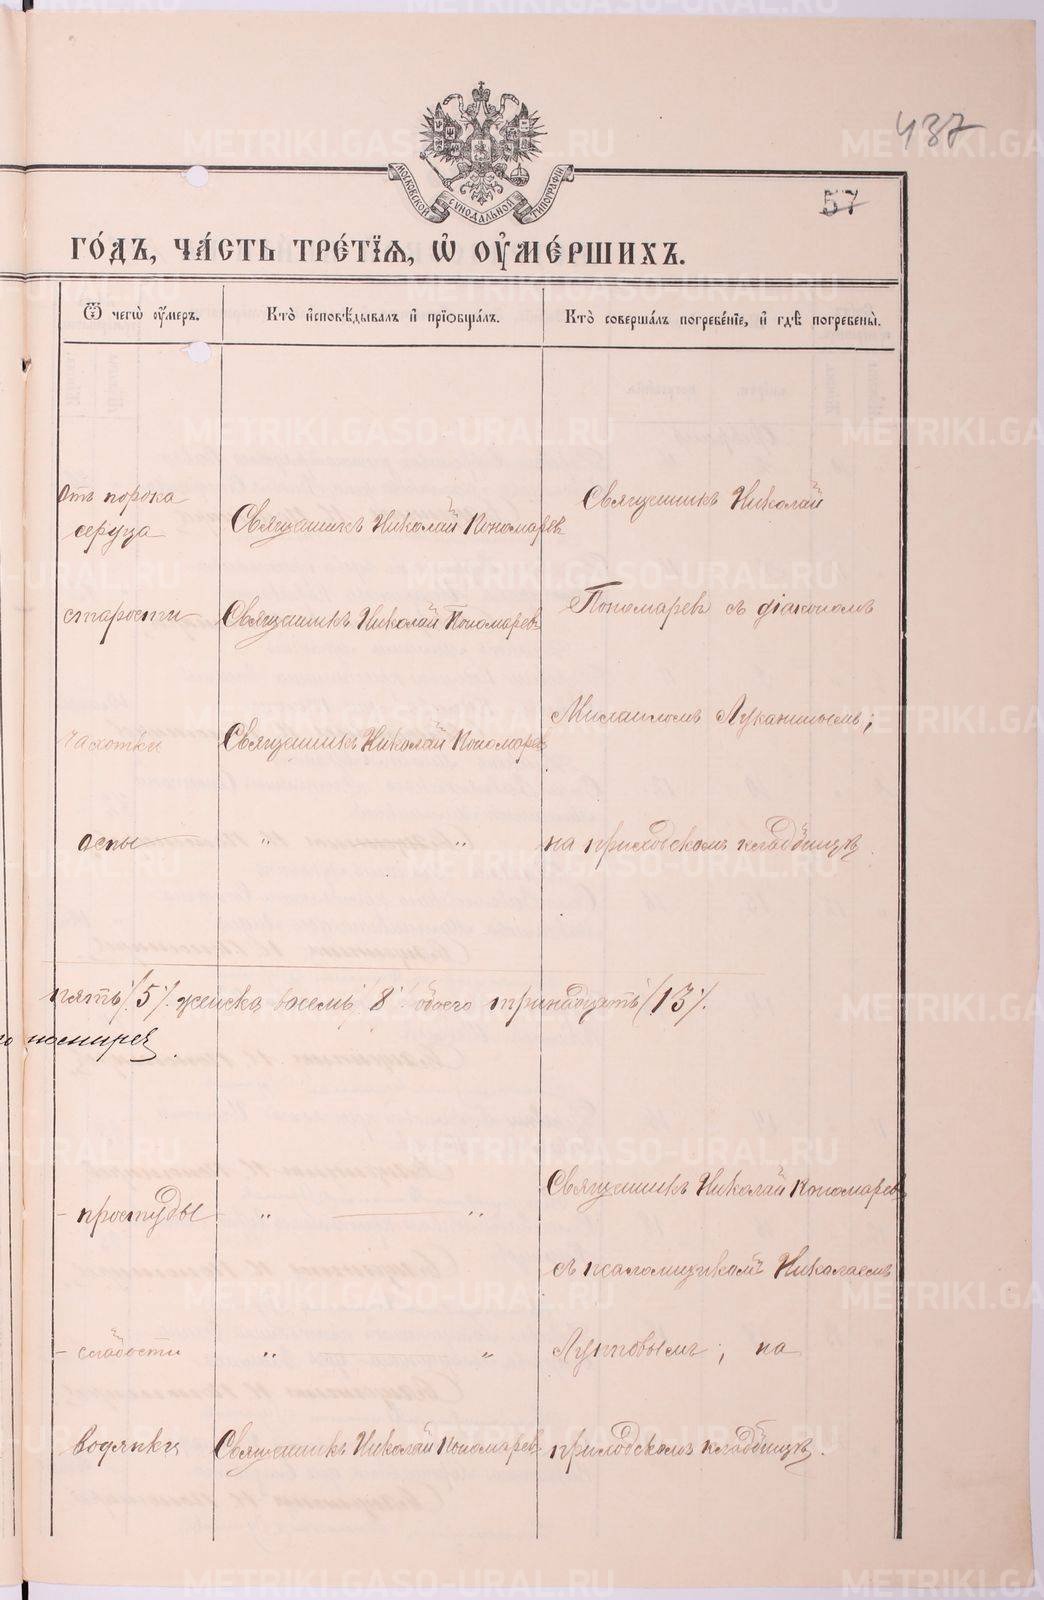 437
57
МОСКОВСКОЙ СѴНОДАЛЬНОЙ ТИПОГРАФІИ
ГО́ДЪ, ЧА́СТЬ ТРЕ́ТІЯ, Ѡ҆ ОУ҆МЕ́РШИХЪ.
Ѿ чегѡ̀ оу҆́меръ.
Кто̀ и҆сповѣ́дывалъ и҆ прїѡбща́лъ.
Кто̀ соверша́лъ погребе́нїе, и҆ гдѣ̀ погребены̀.
Отъ порока
сердца
Священникъ Николай Пономарев
Священникъ Николай
старости
Священникъ Николай Пономаревъ
Пономаревъ съ діакономъ
чахотки
Священникъ Николай Пономарев
Михаиломъ Луканинымъ;
оспы
" "
на приходскомъ кладбищѣ
пять /5/. женска восемь /8/ обоего тринадцать /13/.
Священникъ Николай Пономаревъ
- простуды
" — "
съ псаломщикомъ Николаемъ
- слабости
" — "
Лупповымъ; на
водянки
Священникъ Николай Пономарев
приходскомъ кладбищѣ.
METRIKI.GASO-URAL.RU